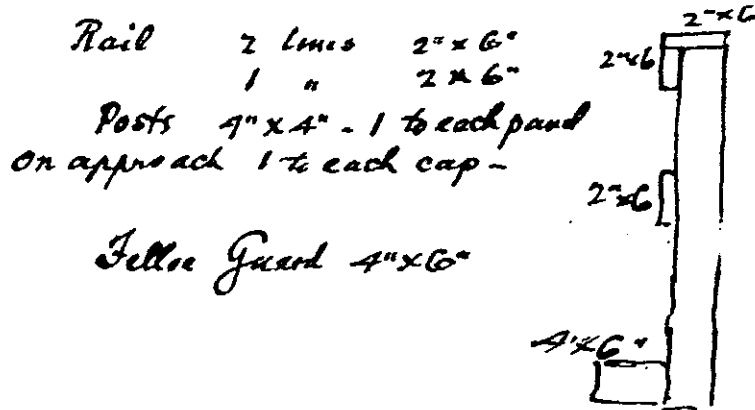 Rail 2 lines 2" x 6"
1 " 2 x 6"
Posts 4" x 4" - 1 to each panel
on approach 1 to each cap -
Felloe Guard 4" x 6"
2" x 6
2" x 6
2" x 6
4" x 6"